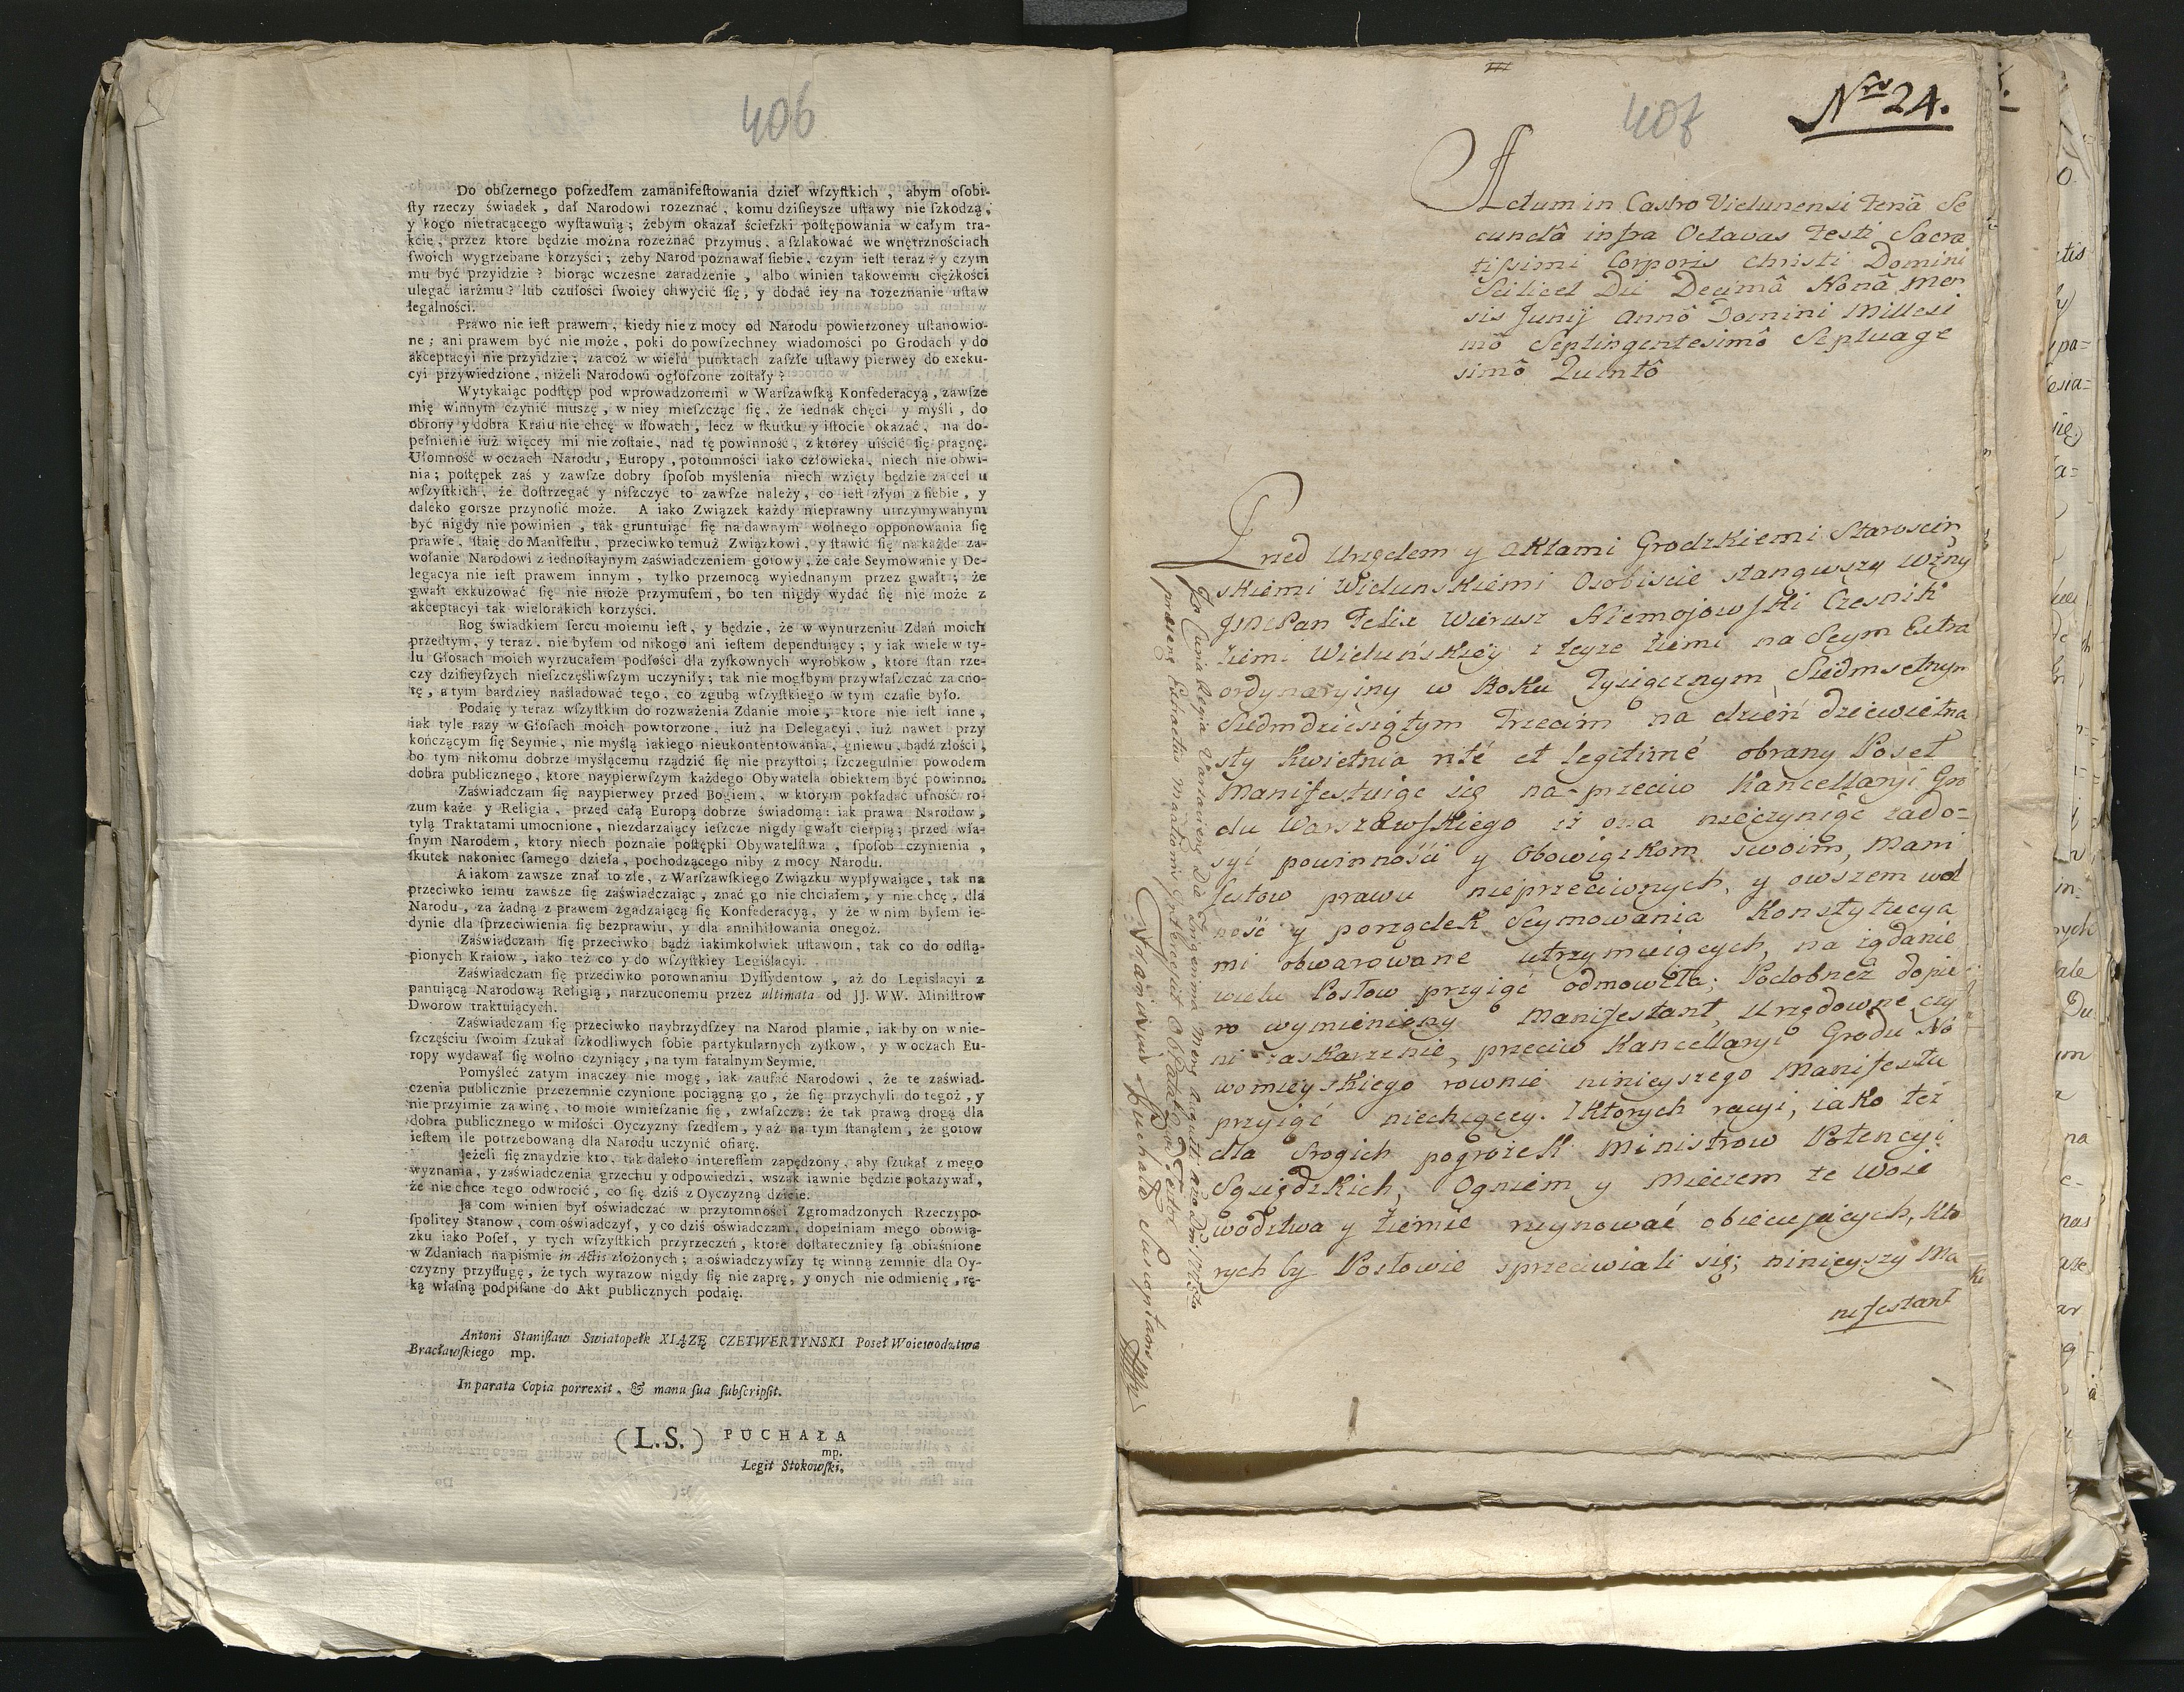 406
Do obſzernego poſzedłem zamanifeſtowania dzieł wſzyſtkich, abym oſobi-
ſty rzeczy świadek, dał Narodowi rozeznać, komu dzifieyſze uſtawy nie ſzkodzą,
y kogo nietracącego wyſtawuią; żebym okazał ścieſzki poſtępowania w całym tra-
kcie, przez ktore będzie można rozeżnać przymus, a ſzlakować we wnętrznościach
ſwoich wygrzebane korzyści; żeby Narod poznawał ſiebie, czym ieſt teraz? y czym
mu być przyidzie? biorąc wczesne zaradzenie, albo winien takowemu ciężkości
ulegać iarżmu? lub czułości ſwoiey chwycić ſię, y dodać iey na rozeznanie uſtaw
legalności.
Prawo nie ieſt prawem, kiedy nie z mocy od Narodu powierzoney uſtanowio-
ne; ani prawem być nie może, poki do powſzechney wiadomości po Grodach y do
akceptacyi nie przyidzie; za coż w wielu punktach zaſzłe uſtawy pierwey do exeku-
cyi przywiedzione, niżeli Narodowi ogłoſzone zoſtały?
Wytykaiąc podſtęp pod wprowadzonemi w Warſzawſką Konfederacyą, zawſze
mię winnym czynić muszę, w niey mieſzcząc ſię, że iednak chęci y myśli, do
obrony y dobra Kraiu nie chcę w ſłowach, lecz w ſkutku y iſtocie okazać, na do-
pełnienie iuż więcey mi nie zoſtaie, nad tę powinność, z ktorey uiścić ſię pragnę.
Ułomność w oczach Narodu, Europy, potomności iako człowieka, niech nie obwi-
nia; poſtępek zaś y zawſze dobry ſpoſob myślenia niech wzięty będzie za cel u
wſzyſtkich, że doſtrzegać y niſzczyć to zawſze należy, co ieſt złym z ſiebie, y
daleko gorsze przynoſić może. A iako Związek każdy nieprawny utrzymywanym
być nigdy nie powinien, tak gruntuiąc ſię na dawnym wolnego opponowania ſię
prawie, ſtaię do Manifeſtu, przeciwko temuż Związkowi, y ſtawić ſię na każde za-
wołanie Narodowi z iednoſtaynym zaświadczeniem gotowy, że całe Seymowanie y De-
legacya nie ieſt prawem innym, tylko przemocą wyiednanym przez gwałt; że
gwałt exkuzować ſię nie może przymuſem, bo ten nigdy wydać ſię nie może z
akceptacyi tak wielorakich korzyści.
Bog świadkiem ſercu moiemu ieſt, y będzie, że w wynurzeniu Zdań moich
przedtym, y teraz, nie byłem od nikogo ani ieſtem dependuiący; y iak wiele w ty-
lu Głosach moich wyrzucałem podłości dla zyſkownych wyrobkow, ktore ſtan rze-
czy dziſieyſzych nieszczęśliwſzym uczyniły; tak nie mogłbym przywłaſzczać za cno-
tę, a tym bardziey naśladować tego, co zgubą wſzyſtkiego w tym czaſie było.
Podaię y teraz wſzyſtkim do rozważenia Zdanie moie, ktore nie ieſt inne,
iak tyle razy w Głoſach moich powtorzone, iuż na Delegacyi, iuż nawet przy
kończącym ſię Seymie, nie myślą iakiego nieukontentowania, gniewu, bądź złości,
bo tym nikomu dobrze myślącemu rządzić ſię nie przyſtoi; ſzczegulnie powodem
dobra publicznego, ktore naypierwſzym każdego Obywatela obiektem być powinno.
Zaświadczam ſię naypierwey przed Bogiem, w ktorym pokładać ufność ro-
zum każe y Religia, przed całą Europą dobrze świadomą: iak prawa Narodow,
tylą Traktatami umocnione, niezdarzaiący ieſzcze nigdy gwałt cierpią; przed wła-
ſnym Narodem, ktory niech poznaie poſtępki Obywatelſtwa, ſpoſob czynienia,
ſkutek nakoniec ſamego dzieła, pochodzącego niby z mocy Narodu.
A iakom zawsze znał to złe, z Warſzawſkiego Związku wypływaiące, tak na
przeciwko iemu zawsze ſię zaświadczaiąc, znać go nie chciałem, y nie chcę, dla
Narodu, za żadną z prawem zgadzaiącą ſię Konfederacyą, y że w nim byłem ie-
dynie dla ſprzeciwienia ſię bezprawiu, y dla annihilowania onegoż.
Zaświadczam ſię przeciwko bądź iakimkolwiek uſtawom, tak co do odſtą-
pionych Kraiow, iako też co y do wſzyſtkiey Legiślacyi.
Zaświadczam ſię przeciwko porownaniu Dyſſydentow, aż do Legislacyi z
panuiącą Narodową Religią, narzuconemu przez ultimata od JJ. WW. Miniſtrow
Dworow traktuiących.
Zaświadczam ſię przeciwko naybrzydſzey na Narod plamie, iak by on w nie-
ſzczęściu ſwoim ſzukał ſzkodliwych ſobie partykularnych zyſkow, y w oczach Eu-
ropy wydawał ſię wolno czyniący, na tym fatalnym Seymie.
Pomyśleć zatym inaczey nie mogę, iak zaufać Narodowi, że te zaświad-
czenia publicznie przezemnie czynione pociągną go, że ſię przychyli do tegoż, y
nie przyimie za winę, to moie wmieſzanie ſię, zwłaſzcza: że tak prawą drogą dla
dobra publicznego w miłości Oyczyzny ſzedłem, y aż na tym ſtanąłem, że gotow
ieſtem ile potrzebowaną dla Narodu uczynić ofiarę.
Jeżeli ſię znaydzie kto, tak daleko intereſſem zapędzony, aby ſzukał z mego
wyznania, y zaświadczenia grzechu y odpowiedzi, wszak iawnie będzie pokażywał,
że nie chce tego odwrocić, co ſię dziś z Oyczyzną dzieie.
Ja com winien był oświadczać w przytomności Zgromadzonych Rzeczypo-
ſpolitey Stanow, com oświadczył, y co dziś oświadczam, dopełniam mego obowią-
zku iako Poſeł, y tych wſzyſtkich przyrzeczeń, ktore doſtateczniey ſą obiaśnione
w Zdaniach na piśmie in Actis złożonych; a oświadczywſzy tę winną zemnie dla Oy-
czyzny przyſługę, że tych wyrazow nigdy ſię nie zaprę, y onych nie odmienię, rę-
ką własną podpiſane do Akt publicznych podaię.
Antoni Staniſław Swiatopełk XIĄZĘ CZETWERTYNSKI Poseł Woiewodztwa
Bracławſkiego mp.
In parata Copia porrexit, & manu ſua ſubſcripſit.
(L.S.) PUCHAŁA
mp.
Legit Stokowſki.
Nro 24.
407
Actum in Castro Vielunensi Feriâ Se
cundâ infra Octavas Festi Sacra
tissimi Corporis Christi Domini
Scilicet Die Decimâ Nonâ Men
sis Junij Annô Domini Millesi
mô Septingentesimô Septuage
simô Quintô
Przed Urzędem y Aktami Grodzkiemi Starościń
skiemi Wieluńskiemi Osobiście stanąwszy Wżny
JmcPan Felix Wierusz Niemojowski Czesnik
Ziemi Wieluńskiey z teyże Ziemi na Seym Extra
ordynaryiny w Roku Tysiącznym Siedmsetnym
Siedmdziesiątym Trzecim na dzień dziewietna
sty Kwietnia rité et legitimé obrany Poseł
Manifestuiąc się na-przeciw Kancellaryi Gro
du Warszawskiego iż ona nieczyniąc zado=
syć powinności y Obowiązkom swoim, Mani
festow prawu nieprzeciwnych, y owszem wol
ność y porządek Seymowania Konstytucya
mi obwarowane utrzymuiących, na żądanie
wielu Posłow przyiąć odmowiła; Podobnież dopie
ro wymieniony Manifestant, Urzędowne czy
ni zaskarżenie, przeciw Kancellaryi Grodu No
womieyskiego rownie ninieyszego Manifestu
przyiąć niechcącey. Z których racyi, iako też
dla srogich pogrożek Ministrow Potencyi
Sąsiedzkich, Ogniem y Mieczem te Woie
wództwa y Ziemie ruynować obiecujących, kto
rych by Posłowie sprzeciwiali się; ninieyszy Ma
nifestant